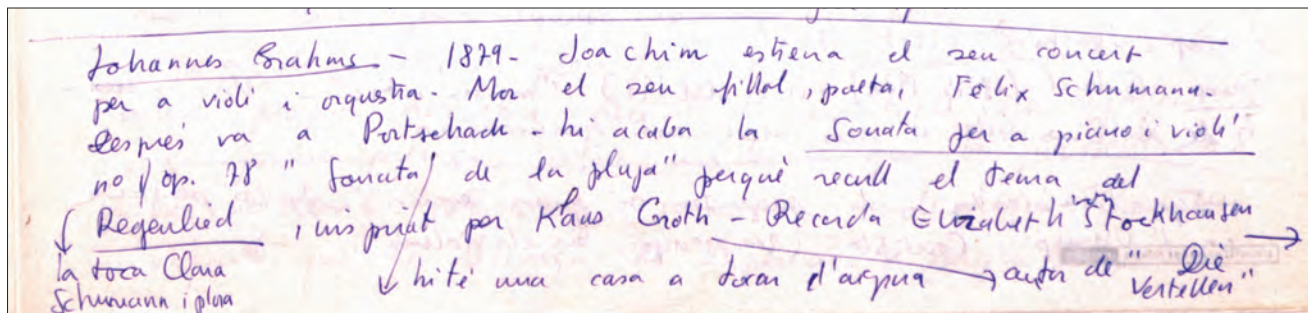 Johannes Brahms - 1879 - Joachim estrena el seu concert
per a violí i orquestra. Mor el seu fillol, poeta, Felix Schumann.
Després va a Portschach - hi acaba la Sonata per a piano i violí
nº 1 op. 78 "Sonata de la pluja" perquè recull el tema del
Regenlied, inspirat per Klaus Groth - Recorda Elizabeth von Stockhausen
la toca Clara hi té una casa a tocar d'aigua → autor de "Die
Schumann i plora Vertellen"